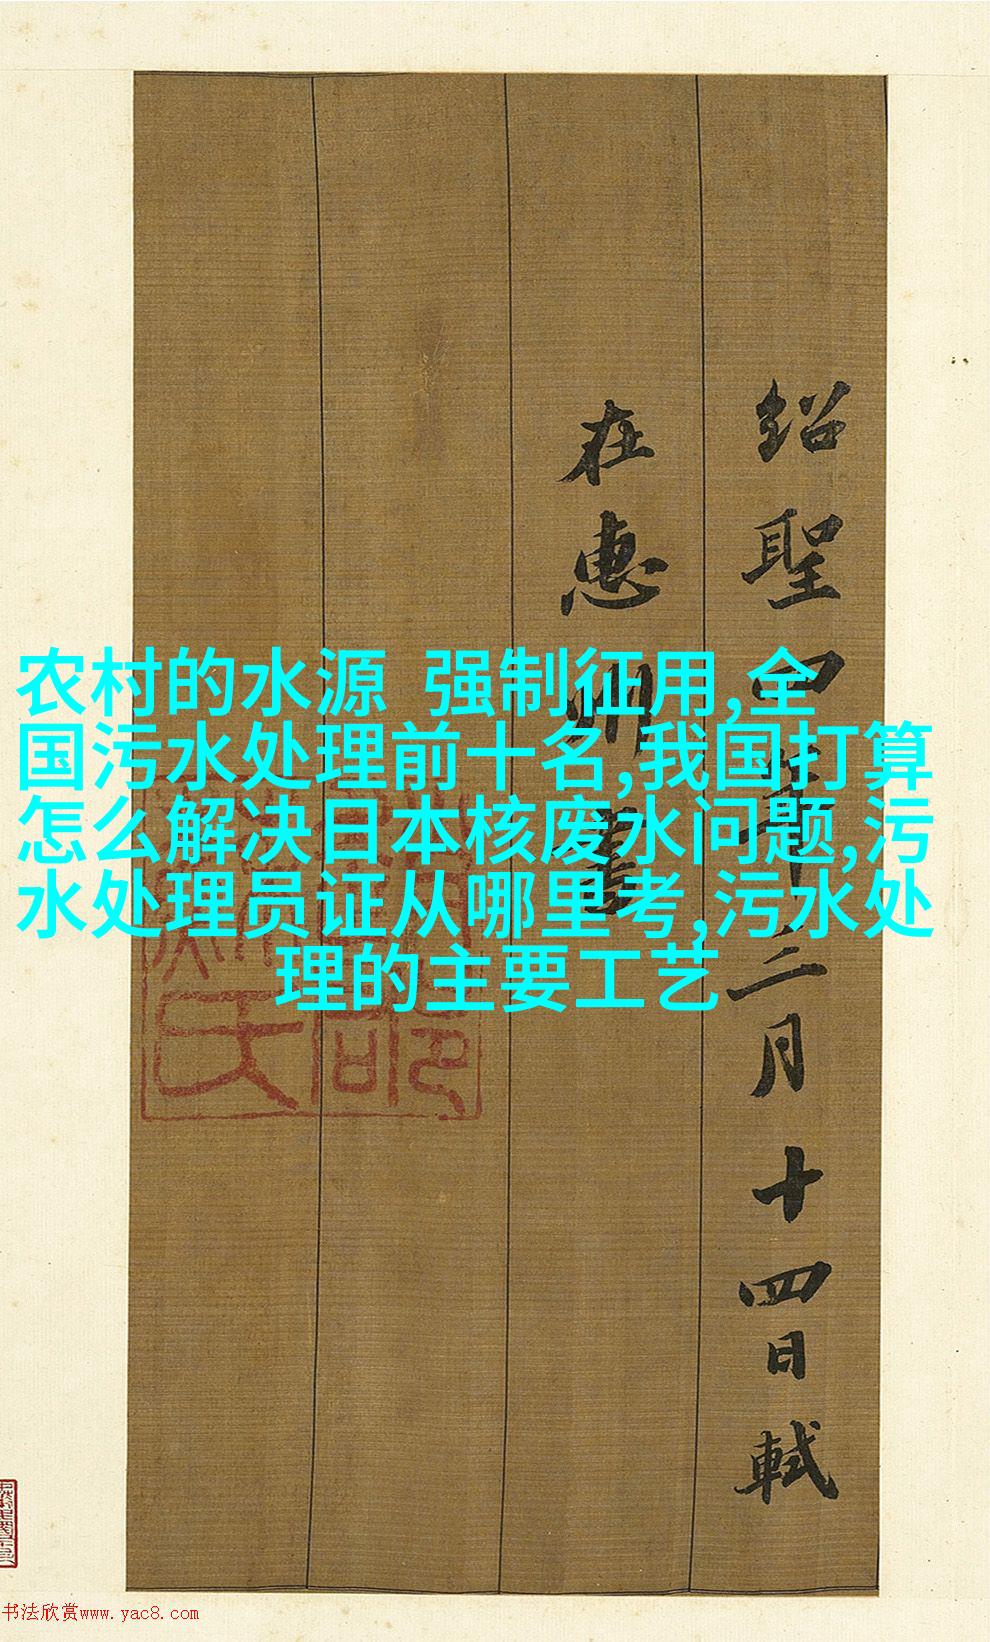 绍聖四年二月十四日軾
在惠州書
农村的水源 强制征用,全
国污水处理前十名,我国打算
怎么解决日本核废水问题,污
水处理员证从哪里考,污水处
理的主要工艺
书法欣赏www.yac8.com